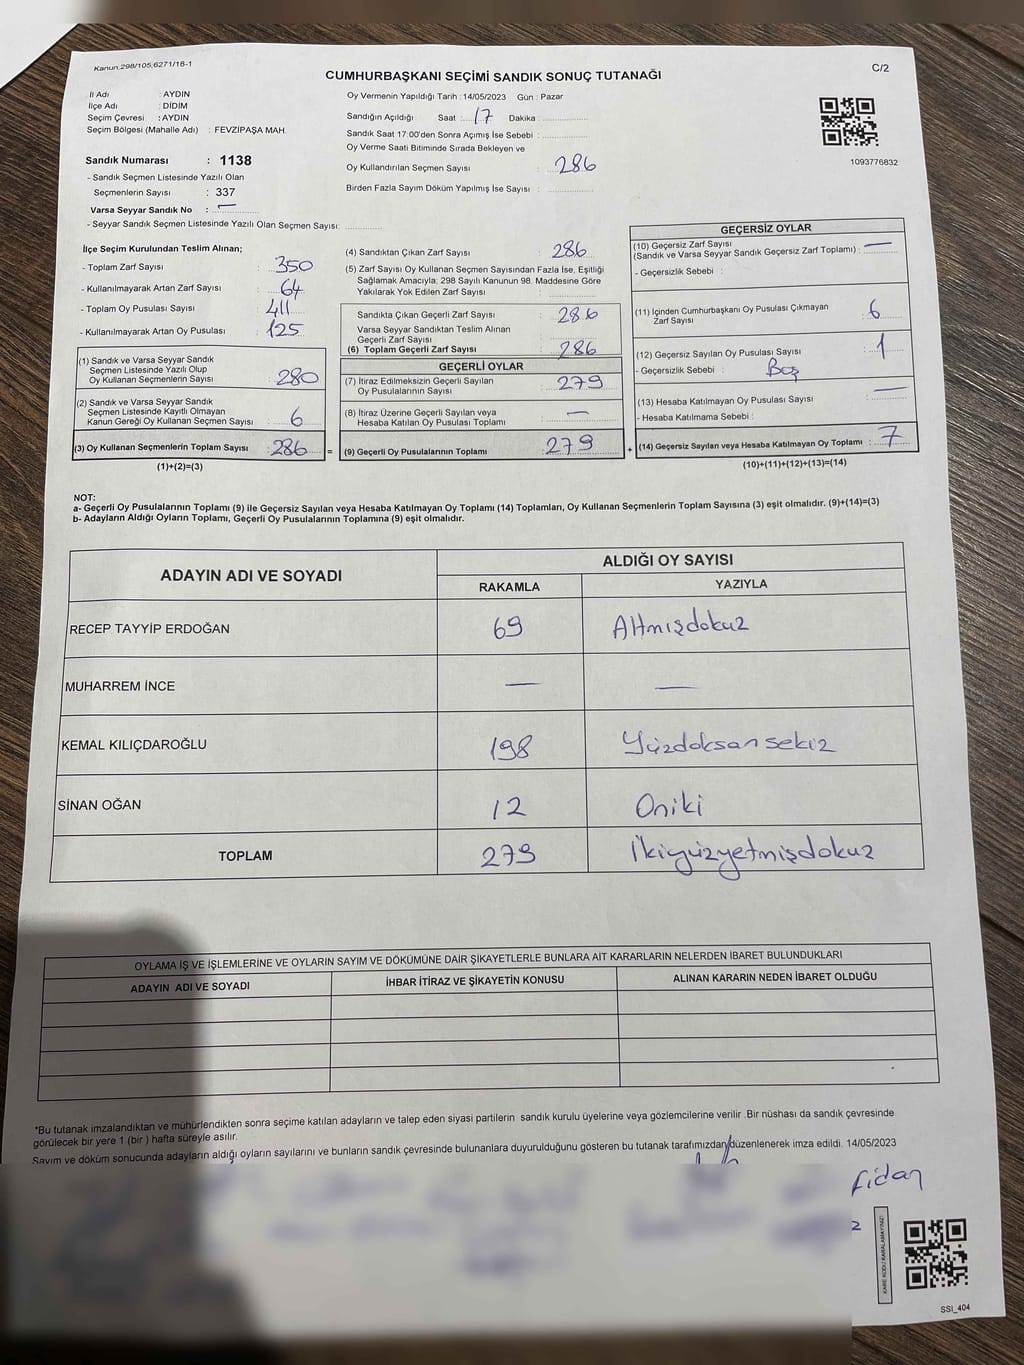 Kanun:298/105,6271/16-1
C/2
CUMHURBAŞKANI SEÇİMİ SANDIK SONUÇ TUTANAĞI
İl Adı : AYDIN
İlçe Adı : DİDİM
Seçim Çevresi : AYDIN
Seçim Bölgesi (Mahalle Adı) : FEVZİPAŞA MAH.
Sandık Numarası : 1138
- Sandık Seçmen Listesinde Yazılı Olan
Seçmenlerin Sayısı : 337
Varsa Seyyar Sandık No : —
- Seyyar Sandık Seçmen Listesinde Yazılı Olan Seçmen Sayısı:
Oy Vermenin Yapıldığı Tarih : 14/05/2023 Gün : Pazar
Sandığın Açıldığı Saat : 17 Dakika :
Sandık Saat 17:00'den Sonra Açımış İse Sebebi :
Oy Verme Saati Bitiminde Sırada Bekleyen ve
Oy Kullandırılan Seçmen Sayısı : 286
Birden Fazla Sayım Döküm Yapılmış İse Sayısı :
1093776832
İlçe Seçim Kurulundan Teslim Alınan;
- Toplam Zarf Sayısı : 350
- Kullanılmayarak Artan Zarf Sayısı : 64
- Toplam Oy Pusulası Sayısı : 411
- Kullanılmayarak Artan Oy Pusulası : 125
(1) Sandık ve Varsa Seyyar Sandık
Seçmen Listesinde Yazılı Olup
Oy Kullanan Seçmenlerin Sayısı : 280
(2) Sandık ve Varsa Seyyar Sandık
Seçmen Listesinde Kayıtlı Olmayan
Kanun Gereği Oy Kullanan Seçmen Sayısı : 6
(3) Oy Kullanan Seçmenlerin Toplam Sayısı : 286 =
(1)+(2)=(3)
(4) Sandıktan Çıkan Zarf Sayısı : 286
(5) Zarf Sayısı Oy Kullanan Seçmen Sayısından Fazla İse, Eşitliği
Sağlamak Amacıyla; 298 Sayılı Kanunun 98. Maddesine Göre
Yakılarak Yok Edilen Zarf Sayısı :
Sandıkta Çıkan Geçerli Zarf Sayısı : 286
Varsa Seyyar Sandıktan Teslim Alınan
Geçerli Zarf Sayısı :
(6) Toplam Geçerli Zarf Sayısı : 286
GEÇERLİ OYLAR
(7) İtiraz Edilmeksizin Geçerli Sayılan
Oy Pusulalarının Sayısı : 279
(8) İtiraz Üzerine Geçerli Sayılan veya
Hesaba Katılan Oy Pusulası Toplamı : —
(9) Geçerli Oy Pusulalarının Toplamı : 279 +
GEÇERSİZ OYLAR
(10) Geçersiz Zarf Sayısı
(Sandık ve Varsa Seyyar Sandık Geçersiz Zarf Toplamı) : —
- Geçersizlik Sebebi :
(11) İçinden Cumhurbaşkanı Oy Pusulası Çıkmayan
Zarf Sayısı : 6
(12) Geçersiz Sayılan Oy Pusulası Sayısı : 1
- Geçersizlik Sebebi : Boş
(13) Hesaba Katılmayan Oy Pusulası Sayısı : —
- Hesaba Katılmama Sebebi :
(14) Geçersiz Sayılan veya Hesaba Katılmayan Oy Toplamı : 7
(10)+(11)+(12)+(13)=(14)
NOT:
a- Geçerli Oy Pusulalarının Toplamı (9) ile Geçersiz Sayılan veya Hesaba Katılmayan Oy Toplamı (14) Toplamları, Oy Kullanan Seçmenlerin Toplam Sayısına (3) eşit olmalıdır. (9)+(14)=(3)
b- Adayların Aldığı Oyların Toplamı, Geçerli Oy Pusulalarının Toplamına (9) eşit olmalıdır.
ADAYIN ADI VE SOYADI ALDIĞI OY SAYISI
RAKAMLA YAZIYLA
RECEP TAYYİP ERDOĞAN 69 Altmışdokuz
MUHARREM İNCE — —
KEMAL KILIÇDAROĞLU 198 Yüzdoksansekiz
SİNAN OĞAN 12 Oniki
TOPLAM 279 İkiyüzyetmişdokuz
OYLAMA İŞ VE İŞLEMLERİNE VE OYLARIN SAYIM VE DÖKÜMÜNE DAİR ŞİKAYETLERLE BUNLARA AİT KARARLARIN NELERDEN İBARET BULUNDUKLARI
ADAYIN ADI VE SOYADI İHBAR İTİRAZ VE ŞİKAYETİN KONUSU ALINAN KARARIN NEDEN İBARET OLDUĞU
*Bu tutanak imzalandıktan ve mühürlendikten sonra seçime katılan adayların ve talep eden siyasi partilerin sandık kurulu üyelerine veya gözlemcilerine verilir .Bir nüshası da sandık çevresinde
görülecek bir yere 1 (bir ) hafta süreyle asılır.
Sayım ve döküm sonucunda adayların aldığı oyların sayılarını ve bunların sandık çevresinde bulunanlara duyurulduğunu gösteren bu tutanak tarafımızdan düzenlenerek imza edildi. 14/05/2023
Fidan
2
KARE KODU KARALAMAYINIZ!
SSI_404